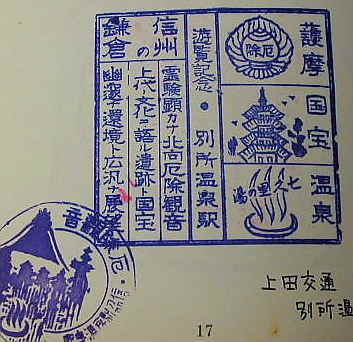 護摩 国宝 温泉
厄除
七久里の湯
遊覧記念・別所温泉駅
信州の
鎌倉
霊験顕カナ北向厄除観音
上代文化ヲ語ル遺跡ト国宝
幽邃ナ環境ト広汎ナ展望
上田交通
別所温
17